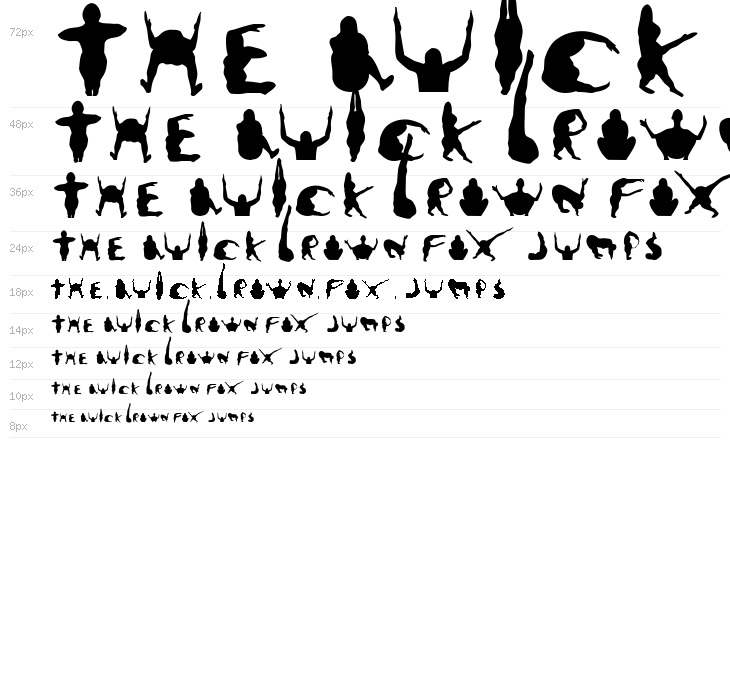 72px THE QUICK
48px THE QUICK BROW
36px THE QUICK BROWN FOX
24px THE QUICK BROWN FOX JUMPS
18px THE QUICK BROWN FOX JUMPS
14px THE QUICK BROWN FOX JUMPS
12px THE QUICK BROWN FOX JUMPS
10px THE QUICK BROWN FOX JUMPS
8px THE QUICK BROWN FOX JUMPS